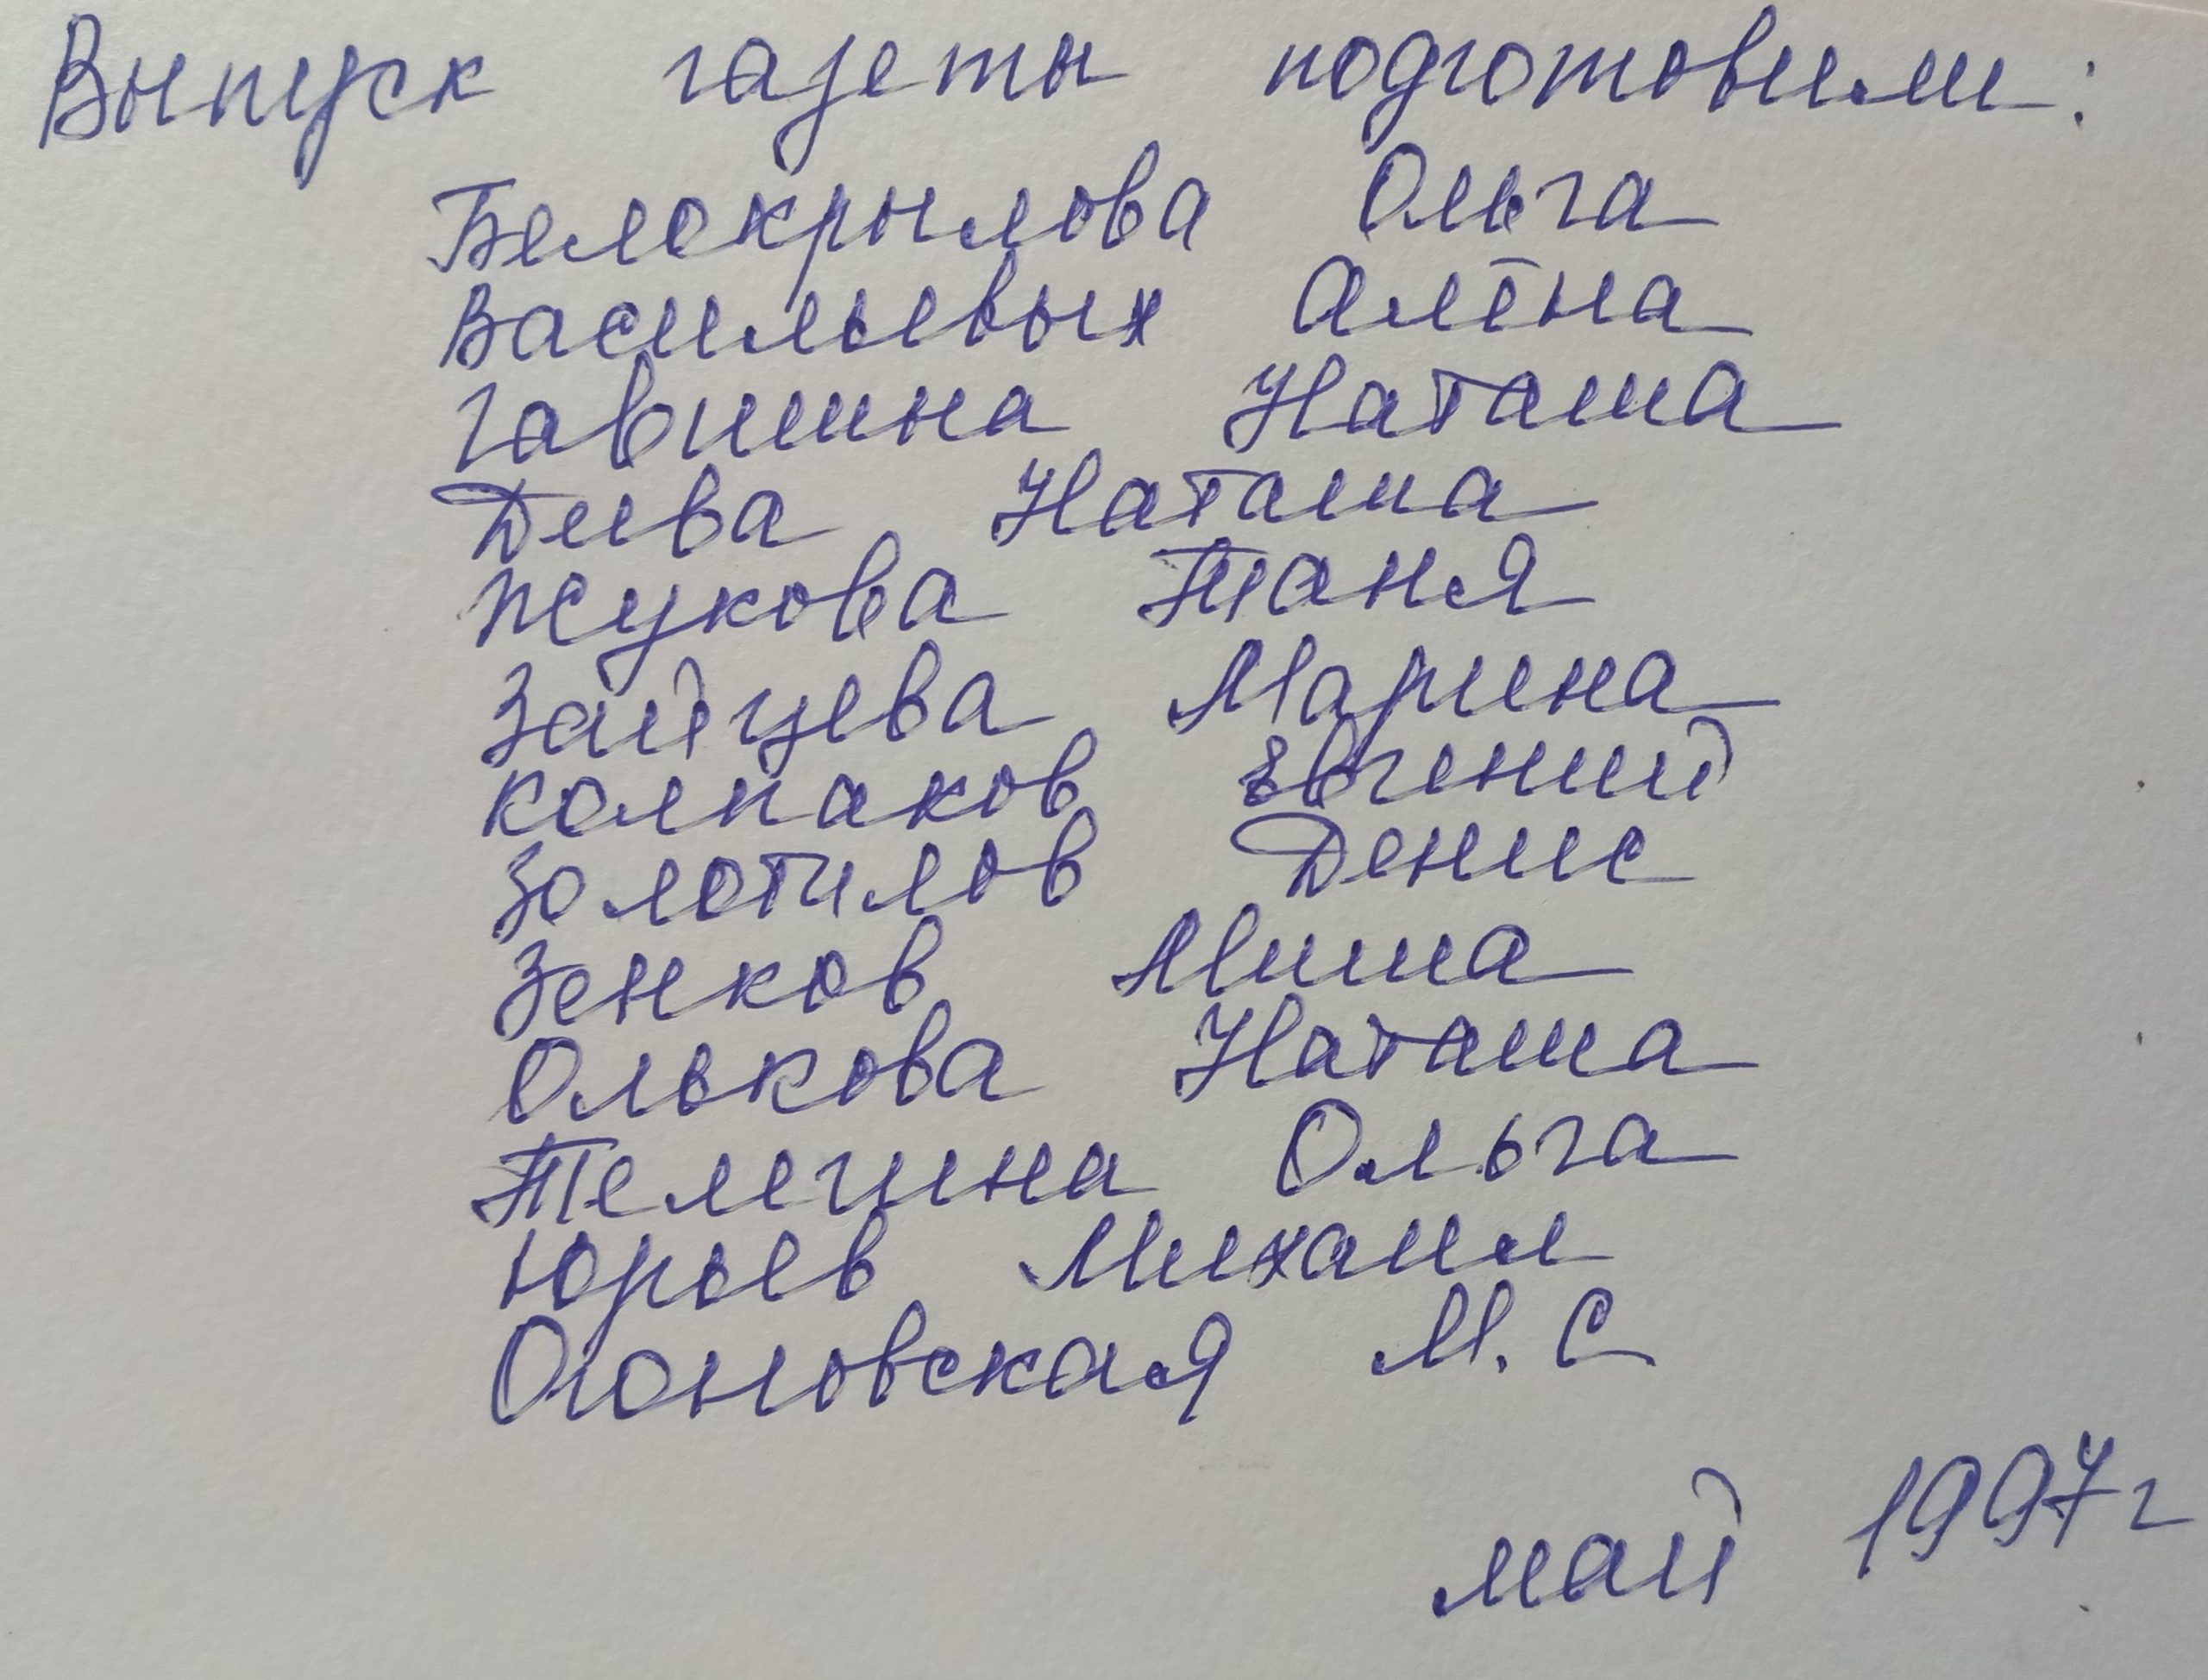 Выпуск газеты подготовили:
Белокрылова Ольга
Васильевых Алёна
Гавшина Наташа
Деева Наташа
Жукова Таня
Зайцева Марина
Колпаков Евгений
Золотилов Денис
Зенков Миша
Олькова Наташа
Телегина Ольга
Юрьев Михаил
М. С
май 1997г